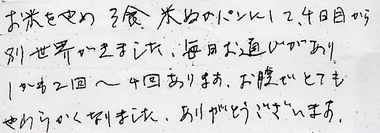 お米をやめ 3食 米ぬかパンにして、4日目から
別世界がきました、毎日お通じがあり
しかも2回〜4回あります、お腹がとても
やわらかくなりました、ありがとうございます。